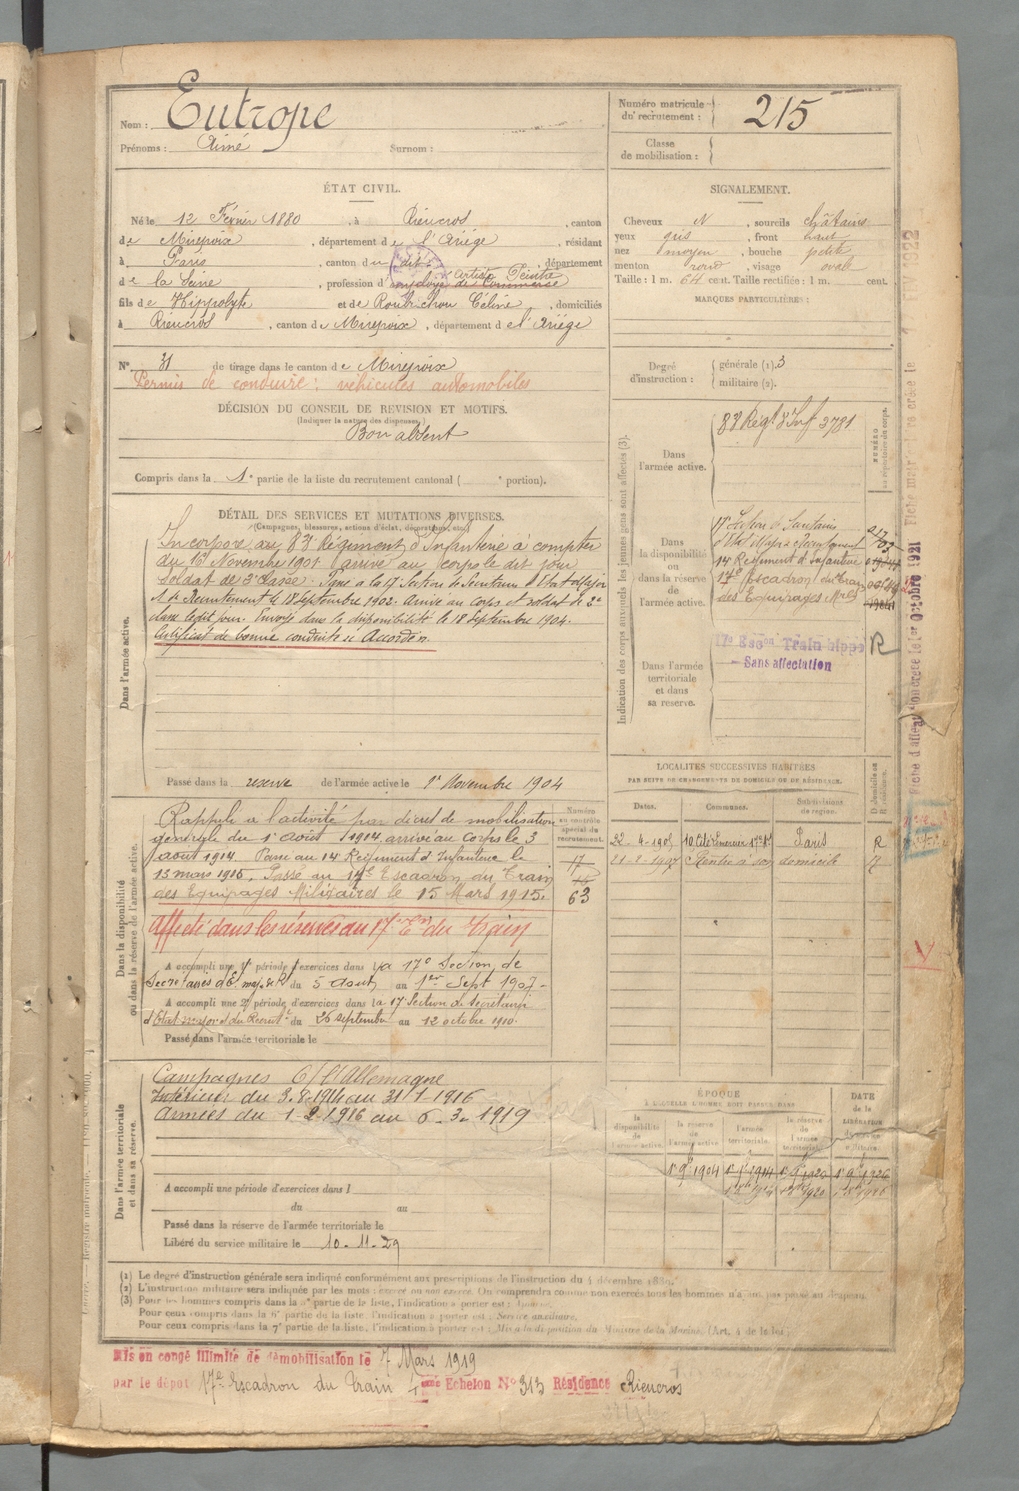 Nom : Eutrope
Prénoms : Aimé Surnom :
Numéro matricule du recrutement : 215
Classe de mobilisation :
ÉTAT CIVIL.
Né le 12 Février 1880, à Rieucros, canton
de Mirepoix, département de l'Ariège, résidant
à Paris, canton du dit, département
de la Seine, profession d'employé de Commerce Artiste Peintre
fils de Hippolyte et de Céline, domiciliés
à Rieucros, canton de Mirepoix, département de l'Ariège
N° 31 de tirage dans le canton de Mirepoix
Permis de conduire : véhicules automobiles
DÉCISION DU CONSEIL DE REVISION ET MOTIFS.
(Indiquer la nature des dispenses)
Bon absent
Compris dans la 1e partie de la liste du recrutement cantonal ( e portion).
SIGNALEMENT.
Cheveux N, sourcils châtains
yeux gris, front haut
nez moyen, bouche petite
menton rond, visage ovale
Taille : 1 m. 64 cent. Taille rectifiée : 1 m. cent.
MARQUES PARTICULIÈRES :
Degré d'instruction : générale (1). 3
militaire (2).
DÉTAIL DES SERVICES ET MUTATIONS DIVERSES.
(Campagnes, blessures, actions d'éclat, décorations, etc.)
Dans l'armée active.
Incorporé au 83 Régiment d'Infanterie à compter
du 16 Novembre 1901 arrivé au corps le dit jour
soldat de 2e classe. Passé à la 17e Section de Secrétaires d'Etat Major
et de Recrutement le 18 Septembre 1902. Arrivé au corps et soldat de 2e
classe le dit jour. Envoyé dans la disponibilité le 18 Septembre 1904.
Certificat de bonne conduite Accordé.
Passé dans la réserve de l'armée active le 1er Novembre 1904
Indication des corps auxquels les jeunes gens sont affectés (3).
NUMÉRO au répertoire du corps.
Dans l'armée active.
83 Régt d'Inf 3781
Dans la disponibilité ou dans la réserve de l'armée active.
17e Section de Secrétaires
d'Etat Major & Recrutement
14 Régiment d'Infanterie
17e Escadron du Train
des Equipages Mres
Dans l'armée territoriale et dans sa réserve.
17e Escon Train hippo R
- Sans affectation
Fiche matricule créée le 1922
Fiche d'affectation créée le 1er Octobre 1921
Dans la disponibilité ou dans la réserve de l'armée active.
Numéro au contrôle spécial du recrutement.
Rappelé à l'activité par décret de mobilisation
générale du 1er août 1914 arrivé au corps le 3
août 1914. Passé au 14 Régiment d'Infanterie le
13 mars 1915. Passé au 17e Escadron du Train
des Equipages Militaires le 15 Mars 1915.
17
63
Affecté dans les réserves au 17e En du train
A accompli une 1e période d'exercices dans la 17e Section de
Secrétaires d'E. major & R du 5 Août au 1er Sept 1907 -
A accompli une 2e période d'exercices dans la 17 Section de Secrétaires
d'Etat major et du Recrutt du 26 septembre au 12 octobre 1910.
Passé dans l'armée territoriale le
LOCALITÉS SUCCESSIVES HABITÉES
PAR SUITE DE CHANGEMENTS DE DOMICILE OU DE RÉSIDENCE.
Dates. Communes. Subdivisions de région. D domicile ou R résidence.
22-4-1905 Paris R
21-8-1907 Rentré à son domicile R
Dans l'armée territoriale et dans sa réserve.
Campagnes C/ l'Allemagne
Intérieur du 3.8.1914 au 31-1-1916
Armées du 1-2-1916 au 6-3-1919
A accompli une période d'exercices dans l
du au
Passé dans la réserve de l'armée territoriale le
Libéré du service militaire le 10-11-29
ÉPOQUE
À LAQUELLE L'HOMME DOIT PASSER DANS
la disponibilité de l'armée active. la réserve de l'armée active l'armée territoriale. la réserve de l'armée territoriale DATE de la LIBÉRATION du service militaire.
1er 9bre 1904 1er 9bre 1914 1er 9bre 1920 1er 9bre 1926
(1) Le degré d'instruction générale sera indiqué conformément aux prescriptions de l'instruction du 4 décembre 1889.
(2) L'instruction militaire sera indiquée par les mots : exercé ou non exercé. On comprendra comme non exercés tous les hommes n'ayant pas passé au drapeau.
(3) Pour les hommes compris dans la 5e partie de la liste, l'indication à porter est : Ajourné.
Pour ceux compris dans la 6e partie de la liste, l'indication à porter est : Service auxiliaire.
Pour ceux compris dans la 7e partie de la liste, l'indication à porter est : Mis à la disposition du Ministre de la Marine (Art. 4 de la loi)
Mis en congé illimité de démobilisation le 7 Mars 1919
par le dépôt 17e Escadron du Train Echelon N° 313 Résidence Rieucros